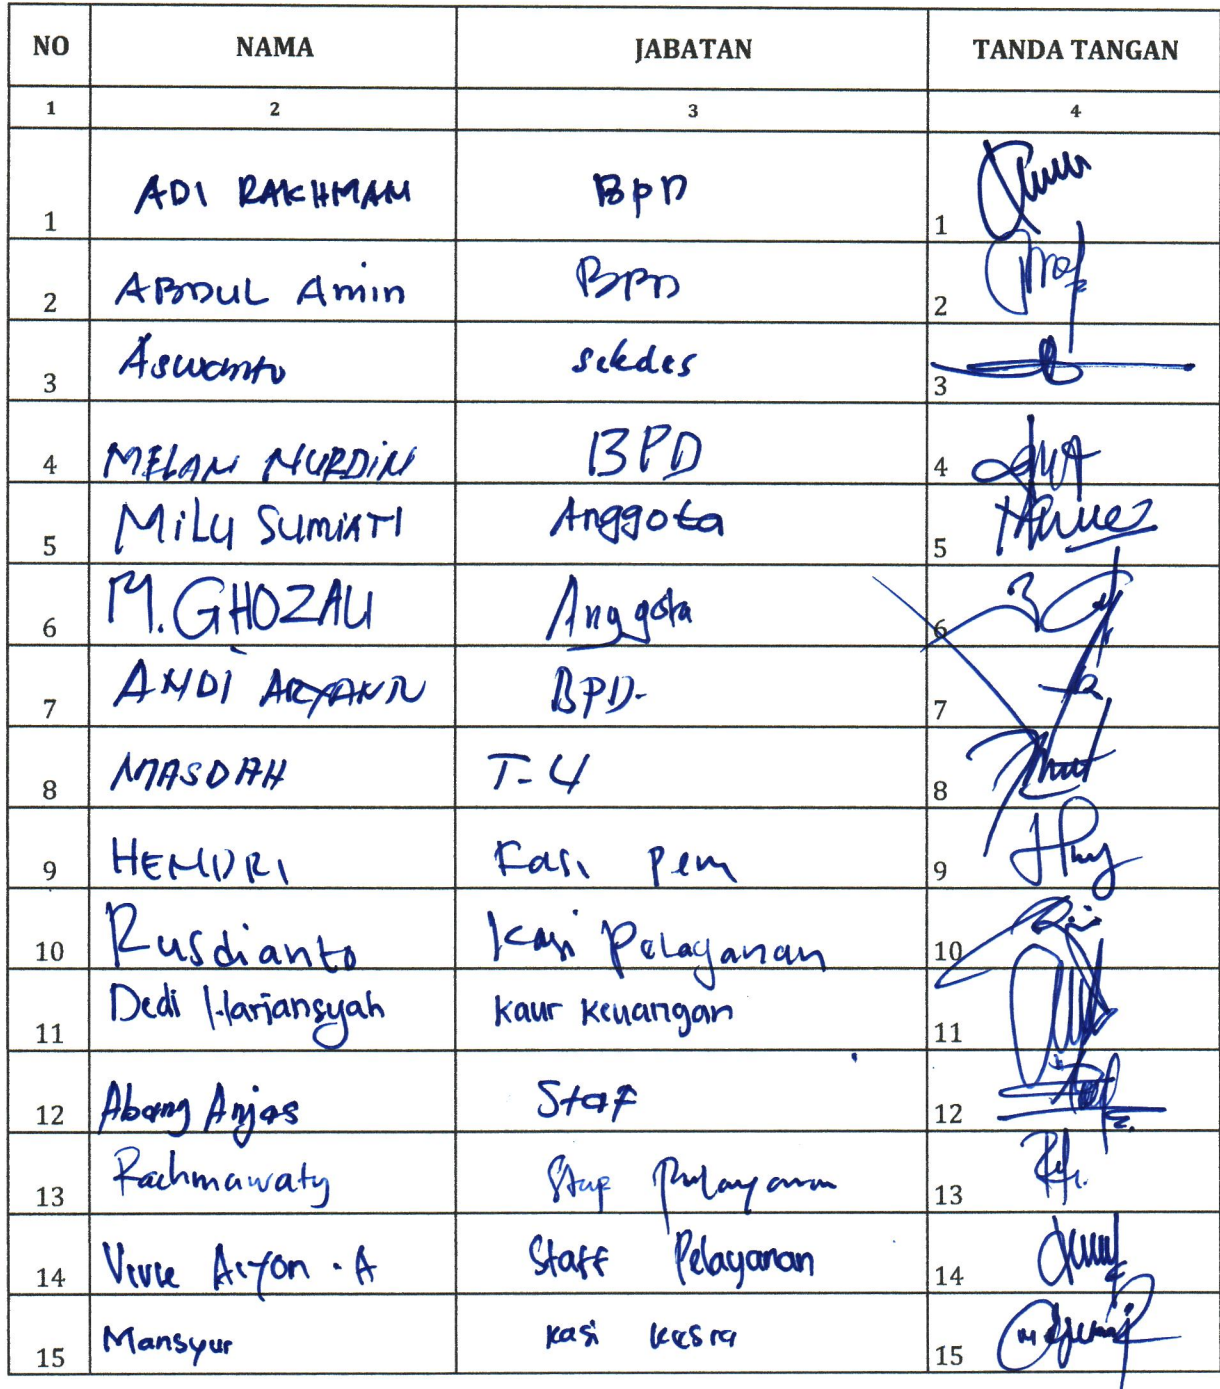 NO NAMA JABATAN TANDA TANGAN
1 2 3 4
1 ADI RAKHMAN BPD 1
2 ABDUL Amin BPD 2
3 Aswanto sekdes 3
4 MELAN NURDIN BPD 4
5 MiLy SUMIATI Anggota 5
6 M. GHOZALI Anggota 6
7 ANDI BPD- 7
8 MASDAH T-4 8
9 HENDRI Kasi pem 9
10 Rusdianto Kasi Pelayanan 10
11 Dedi Harjansyah kaur keuangan 11
12 Abang Anjas Staf 12
13 Rachmawaty Stap Pelayanan 13
14 A Staff Pelayanan 14
15 Mansyur kasi kesra 15